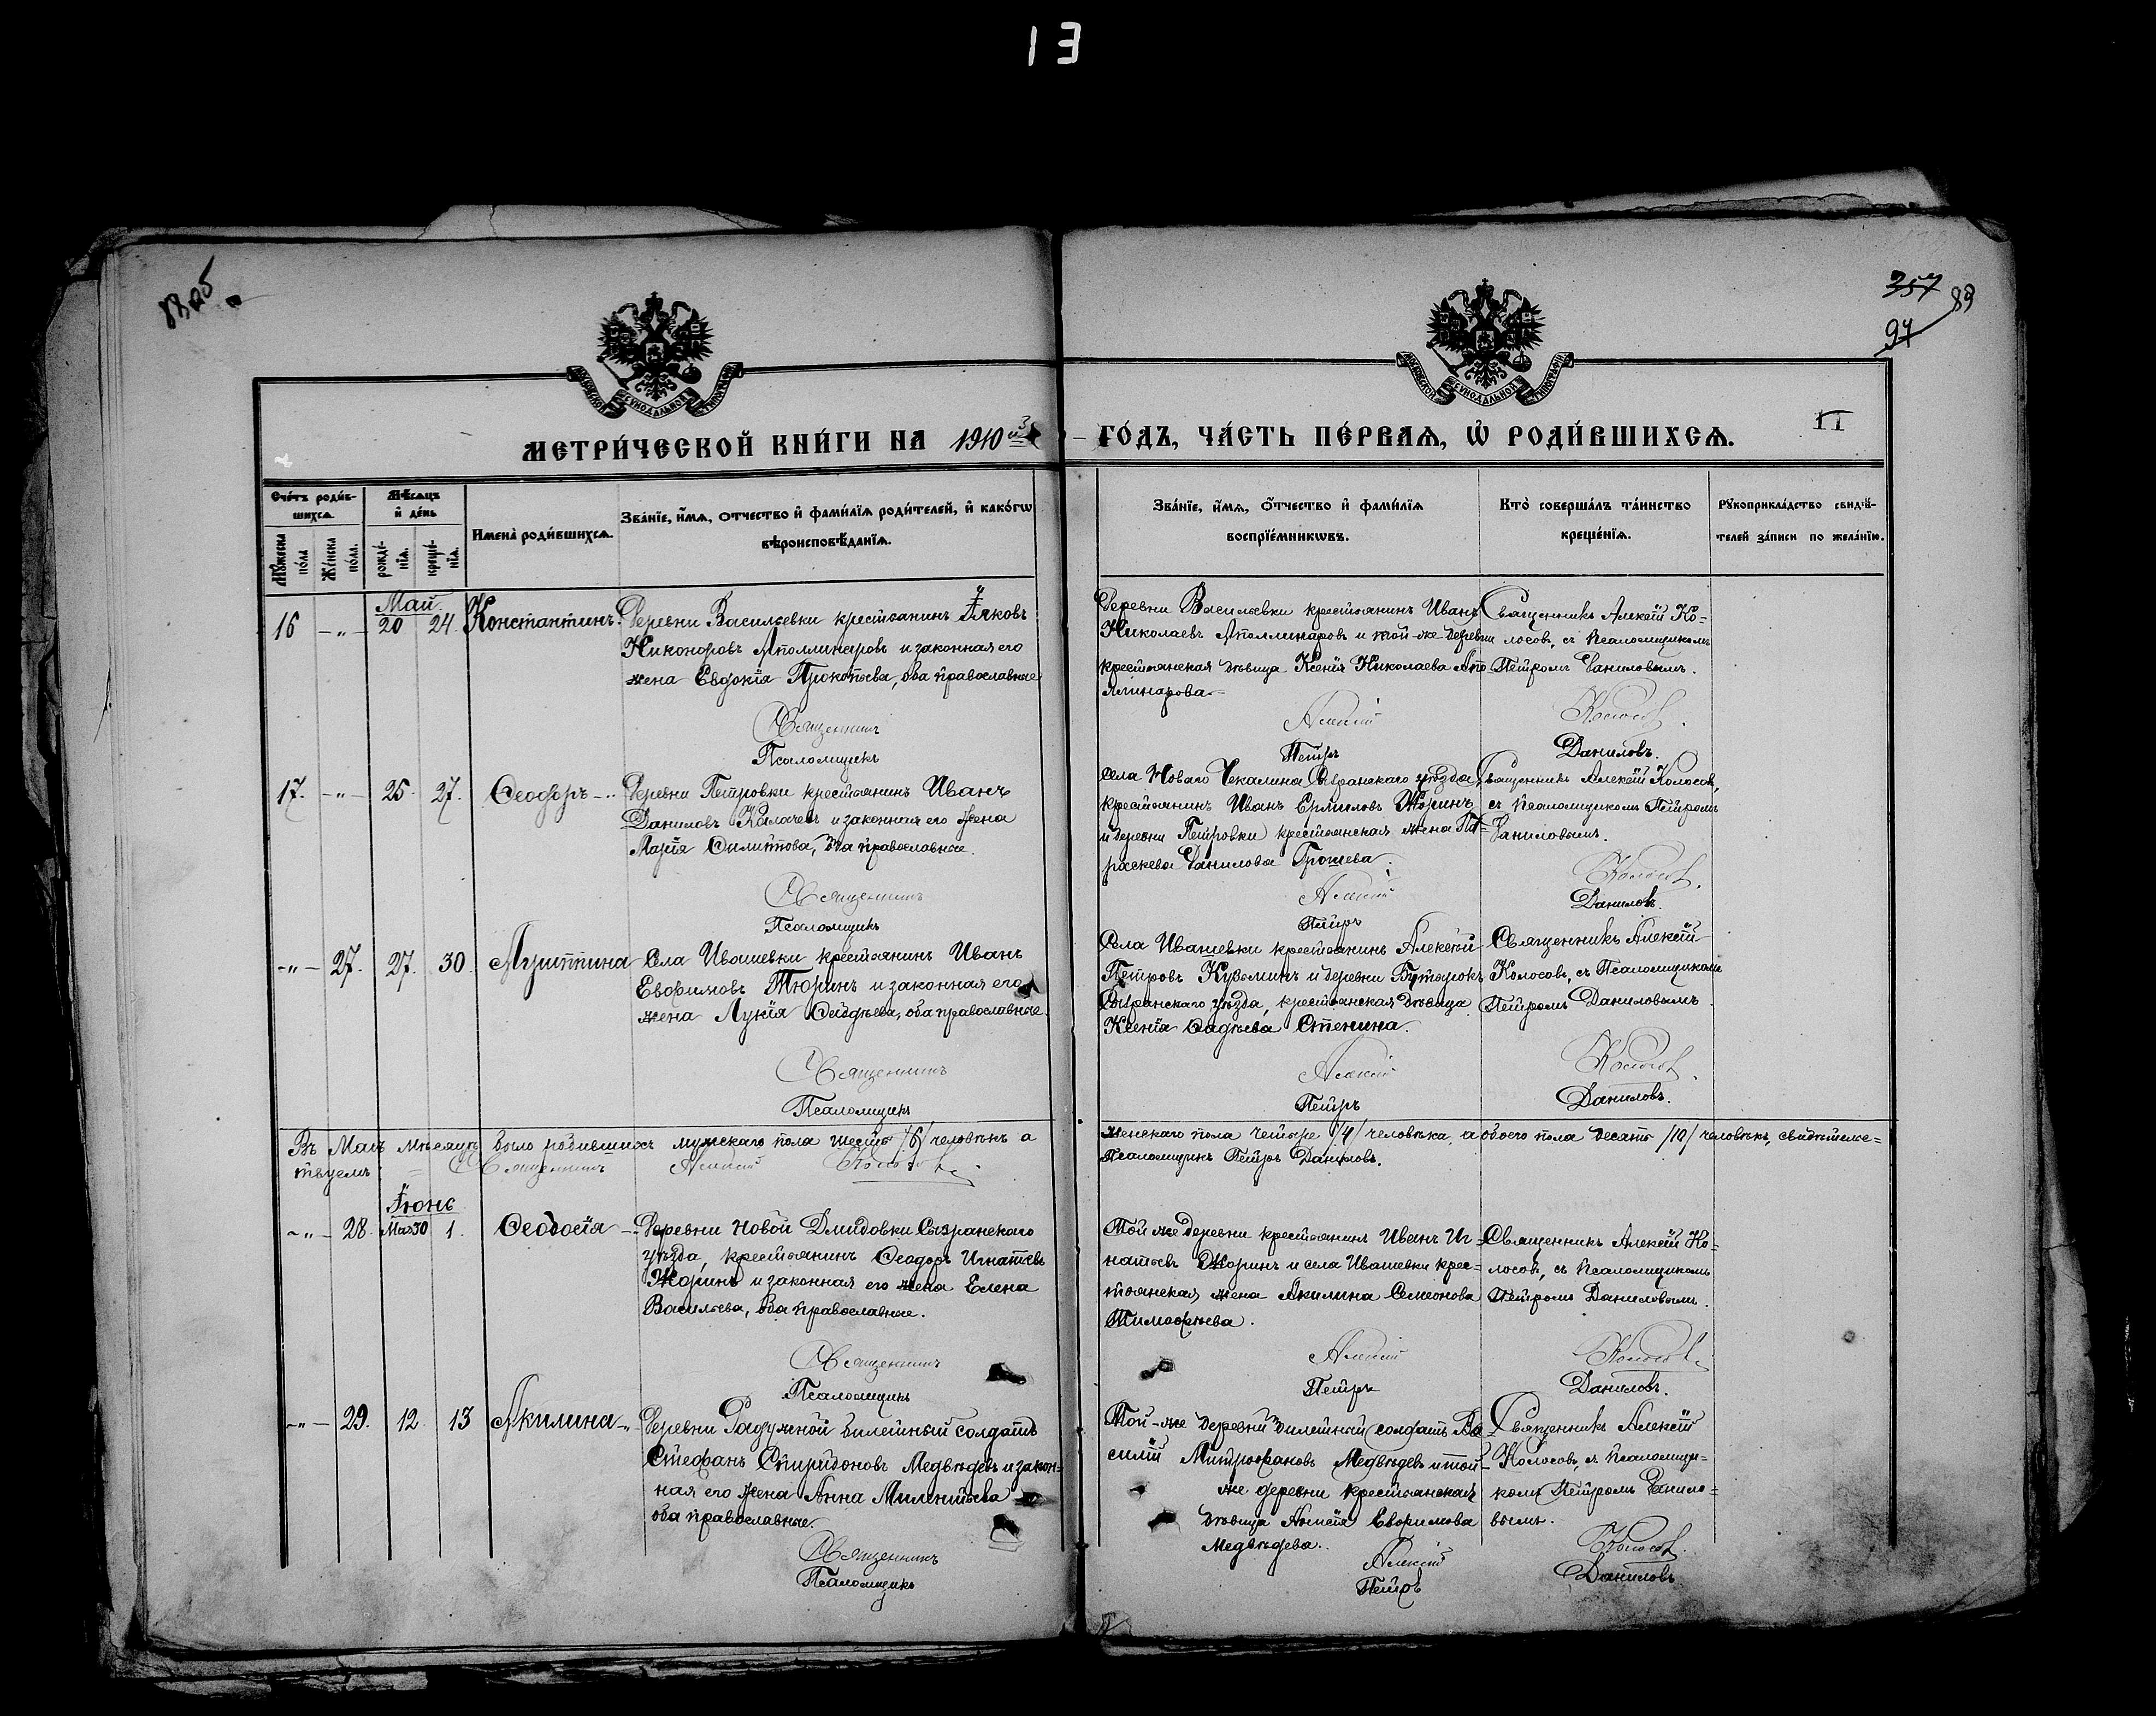 13
357
89
94
МОСКОВСКОЙ СѴНОДАЛЬНОЙ ТИПОГРАФІИ
МОСКОВСКОЙ СѴНОДАЛЬНОЙ ТИПОГРАФІИ
МЕТРИ́ЧЕСКОЙ КНИ́ГИ НА 1910й
ГО́ДЪ, ЧА́СТЬ ПЕ́РВАѦ, Ѡ҆ РОДИ́ВШИХСѦ.
11
Сче́тъ роди́в-
шихсѧ
Мѣ́сѧцъ
и҆ де́нь
Мꙋ́жеска
по́ла
Же́нска
по́ла.
рожде́-
нїѧ.
креще́-
нїѧ.
Имена̀ роди́вшихсѧ.
Зва́нїе, и҆́мѧ, ѻ҆́тчество и҆ фами́лїѧ роди́телей, и҆ како́гѡ
вѣроисповѣ́данїѧ.
Зва́нїе, и҆́мѧ, ѻ҆́тчество и҆ фами́лїѧ
воспрїе́мникѡвъ.
Кто̀ соверша́лъ та́инство
креще́нїѧ.
Рꙋкоприкла́дство свидѣ́-
телей за́писи по жела́нїю.
Май.
16 - „ - 20 24. Константинъ. Деревни Васильевки крестьянинъ Іяковъ
Никоноровъ Аполлинаровъ и законная его
жена Евдокія Прокопьева, оба православные
Священникъ
Псаломщикъ
Деревни Васильевки крестьянинъ Иванъ
Николаевъ Аполлинаровъ и той-же деревни
крестьянская дѣвица Ксенія Николаева Апо-
ллинарова.
Алексій
Петръ
Священникъ Алексій Ко-
лосовъ, съ Псаломщикомъ
Петромъ Даниловымъ.
Колосовъ.
Даниловъ.
17. - „ - 25. 27. Ѳеодоръ - Деревни Петровки крестьянинъ Иванъ
Даниловъ Калачевъ и законная его жена
Марія Филиппова, оба православные.
Священникъ
Псаломщикъ
Села Новаго Чекалина Сызранскаго уѣзда,
крестьянинъ Иванъ Ермиловъ Жоринъ,
и деревни Петровки крестьянская жена Па-
раскева Данилова Грошева.
Алексій
Петръ
Священникъ Алексій Колосовъ,
съ Псаломщикомъ Петромъ
Даниловымъ.
Колосовъ.
Даниловъ.
- „ - 27. 27. 30. Агриппина Села Ивашевки крестьянинъ Иванъ
Евфимовъ Тюринъ и законная его
жена Лукія Ѳаддѣева, оба православные.
Священникъ
Псаломщикъ
Села Ивашевки крестьянинъ Алексѣй
Петровъ Кузьминъ и деревни
Сызранскаго уѣзда, крестьянская дѣвица
Ксенія Ѳадѣева Стенина.
Алексій
Петръ
Священникъ Алексій
Колосовъ, съ Псаломщикомъ
Петромъ Даниловымъ.
Колосовъ.
Даниловъ.
Въ Маѣ мѣсяцѣ было родившихся мужскаго пола шесть /6/ человѣкъ а
женскаго пола четыре /4/ человѣка, а обоего пола десять /10/ человѣкъ, свидѣтельс=
твуемъ: Священникъ Алексій Колосовъ.
Псаломщикъ Петръ Даниловъ.
Іюнь
- „ - 28. Мая 30 1. Ѳеодосія - Деревни Новой Дмидовки Сызранскаго
уѣзда, крестьянинъ Ѳеодоръ Игнатьевъ
Жоринъ и законная его жена Елена
Васильева, оба православные.
Священникъ
Псаломщикъ
Той же деревни крестьянинъ Иванъ Иг-
натьевъ Жоринъ и села Ивашевки крес=
тьянская жена Акилина Семеонова
Тимофѣева.
Алексій
Петръ
Священникъ Алексій Ко-
лосовъ, съ Псаломщикомъ
Петромъ Даниловымъ.
Колосовъ.
Даниловъ.
- „ - 29. 12. 13 Акилина - Деревни Радужной билетный солдатъ
Стефанъ Спиридоновъ Медвѣдевъ и закон=
ная его жена Анна Милентьева
оба православные.
Священникъ
Псаломщикъ
Той-же деревни билетный солдатъ Ва-
силій Митрофановъ Медвѣдевъ и той-
же деревни крестьянская
дѣвица Евфимова
Медвѣдева.
Алексій
Петръ
Священникъ Алексій
Колосовъ, съ Псаломщи-
комъ Петромъ Данило=
вымъ.
Колосовъ.
Даниловъ